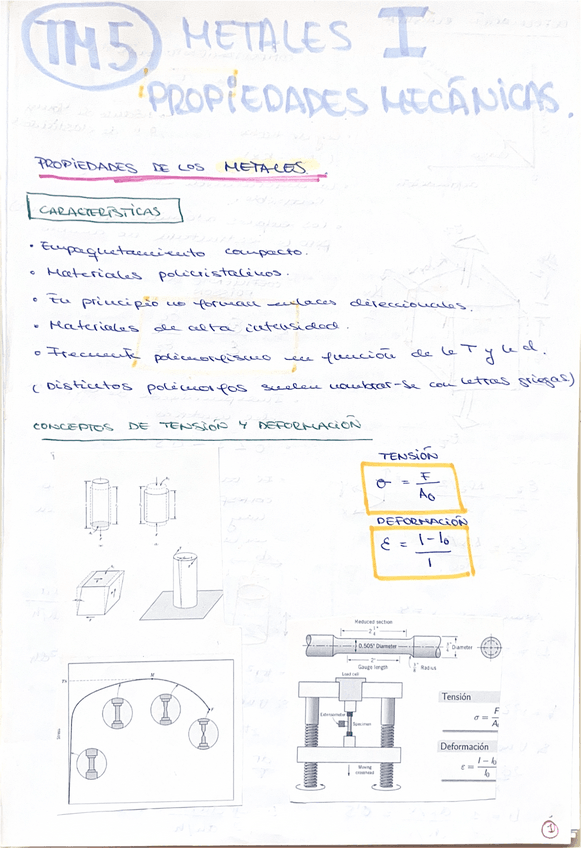 TM5 METALES I
PROPIEDADES MECÁNICAS.
PROPIEDADES DE LOS METALES
CARACTERÍSTICAS
• Empaquetamiento compacto.
• Materiales policristalinos.
• En principio no forman enlaces direccionales.
• Materiales de alta intensidad.
• Frecuente polimorfismo en función de la T y la d.
( Distintos polimorfos suelen nombrar-se con letras griegas)
CONCEPTOS DE TENSIÓN Y DEFORMACIÓN
TENSIÓN
σ = F / A₀
DEFORMACIÓN
ε = l - l₀ / l
Reduced section
2 1/4"
0.505" Diameter
3/4" Diameter
2"
Gauge length
3/8" Radius
Load cell
Extensometer
Specimen
Moving crosshead
Tensión
σ = F / A
Deformación
ε = l - l₀ / l₀
Stress
M
F
1